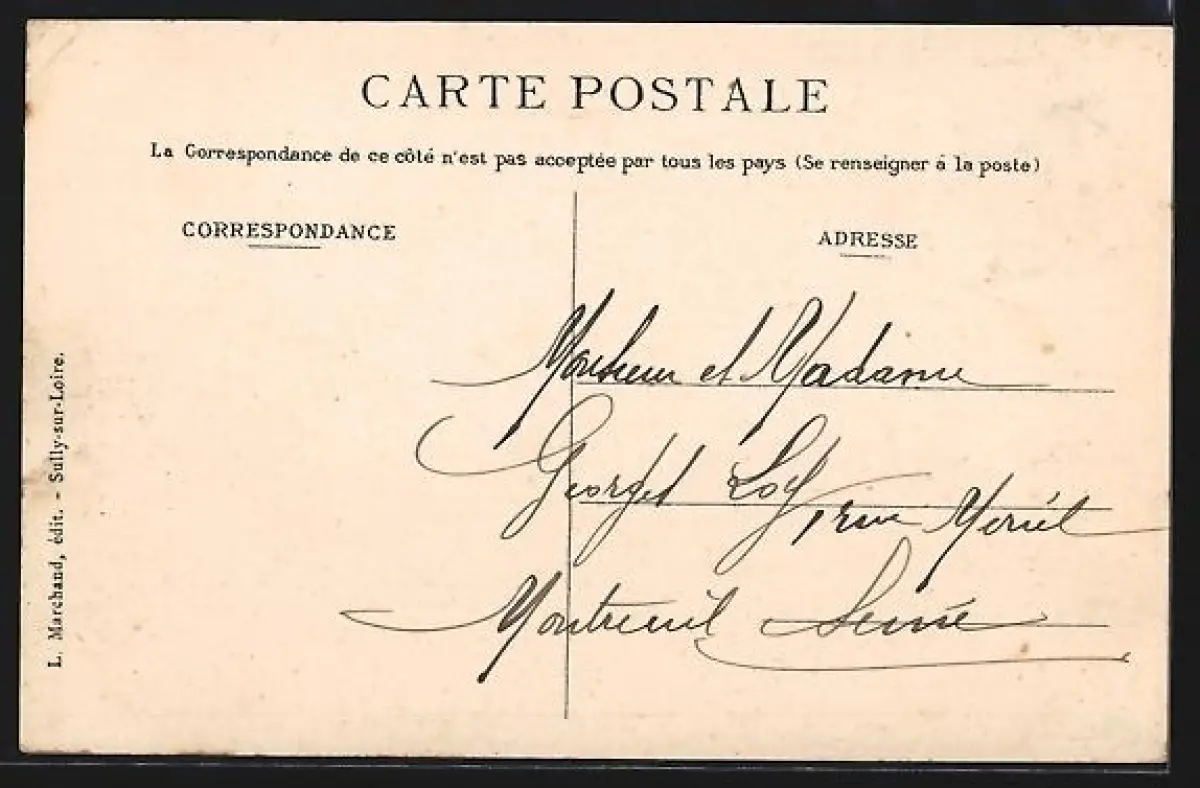 CARTE POSTALE
La Correspondance de ce côté n'est pas acceptée par tous les pays (Se renseigner à la poste)
CORRESPONDANCE
ADRESSE
Monsieur et Madame
Georges rue Mériel
Montreuil Seine
L. Marchand, édit. - Sully-sur-Loire.